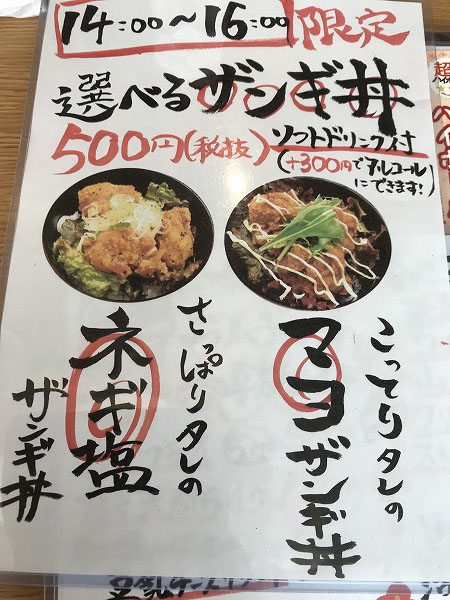 14:00～16:00 限定
選べるザンギ丼
500円(税抜)
ソフトドリンク付
(+300円でアルコール
にできます!)
こってりタレの
マヨザンギ丼
さっぱりタレの
ネギ塩
ザンギ丼
超